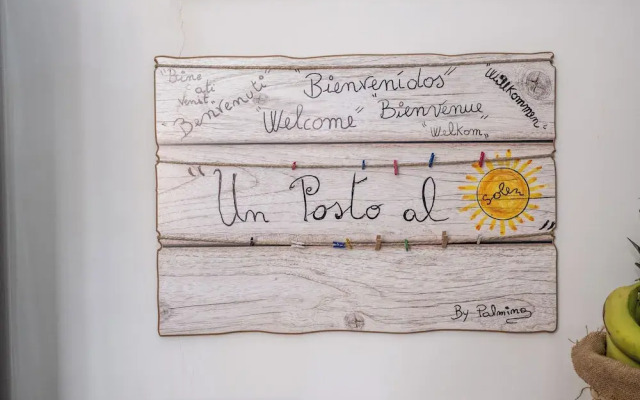 "Bene
ati
venit"
"Benvenuti"
"Bienvenidos"
"Welcome"
"Bienvenue"
"Welkom"
"Willkommen"
"Un Posto al
sole"
By Palmina